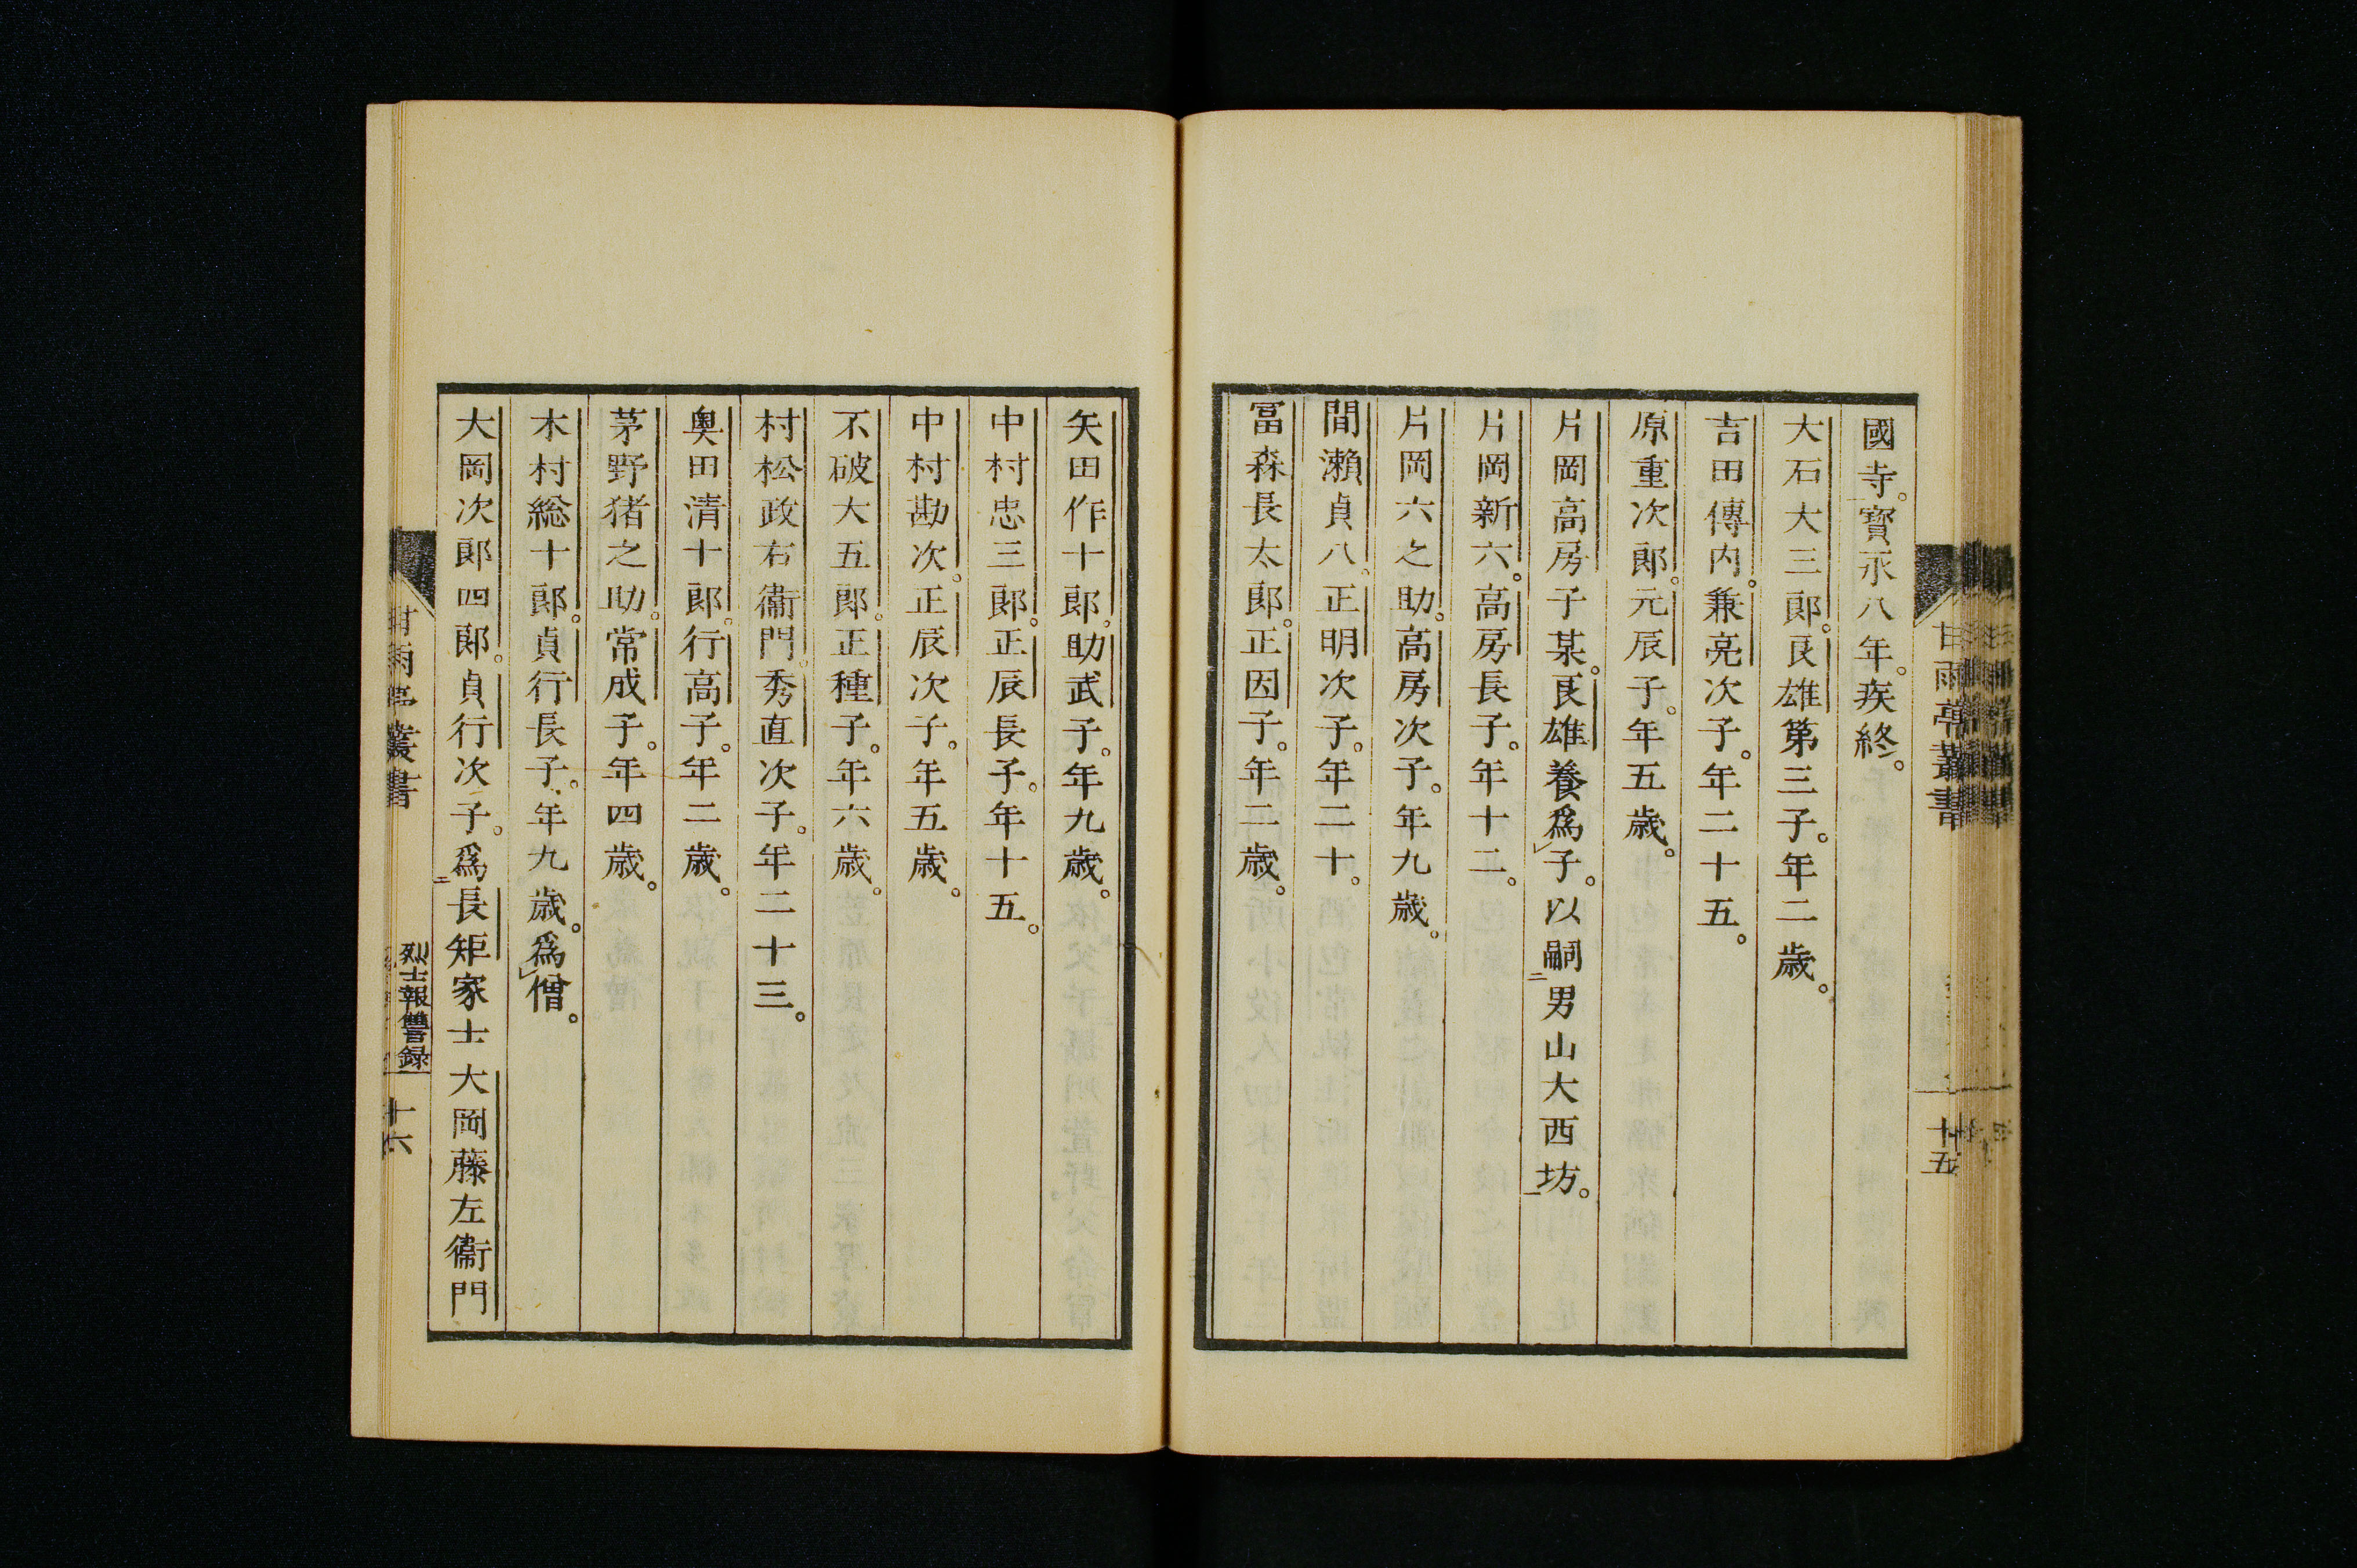 國寺。寳永八年。疾終。
大石大三郎。良雄第三子。年二歳。
吉田傳内。兼亮次子。年二十五。
原重次郎。元辰子。年五歳。
片岡高房子某。良雄養爲子。以嗣男山大西坊。
片岡新六。高房長子。年十二。
片岡六之助。高房次子。年九歳。
間瀨貞八。正明次子。年二十。
冨森長太郎。正因子。年二歳。
甘雨亭叢書
十五
矢田作十郎。助武子。年九歳。
中村忠三郎。正辰長子。年十五。
中村勘次。正辰次子。年五歳。
不破大五郎。正種子。年六歳。
村松政右衞門。秀直次子。年二十三。
奥田清十郎。行高子。年二歳。
茅野猪之助。常成子。年四歳。
木村総十郎。貞行長子。年九歳。爲僧。
大岡次郎四郎。貞行次子。爲長矩家士大岡藤左衞門
甘雨亭叢書
烈士報讐録
十六